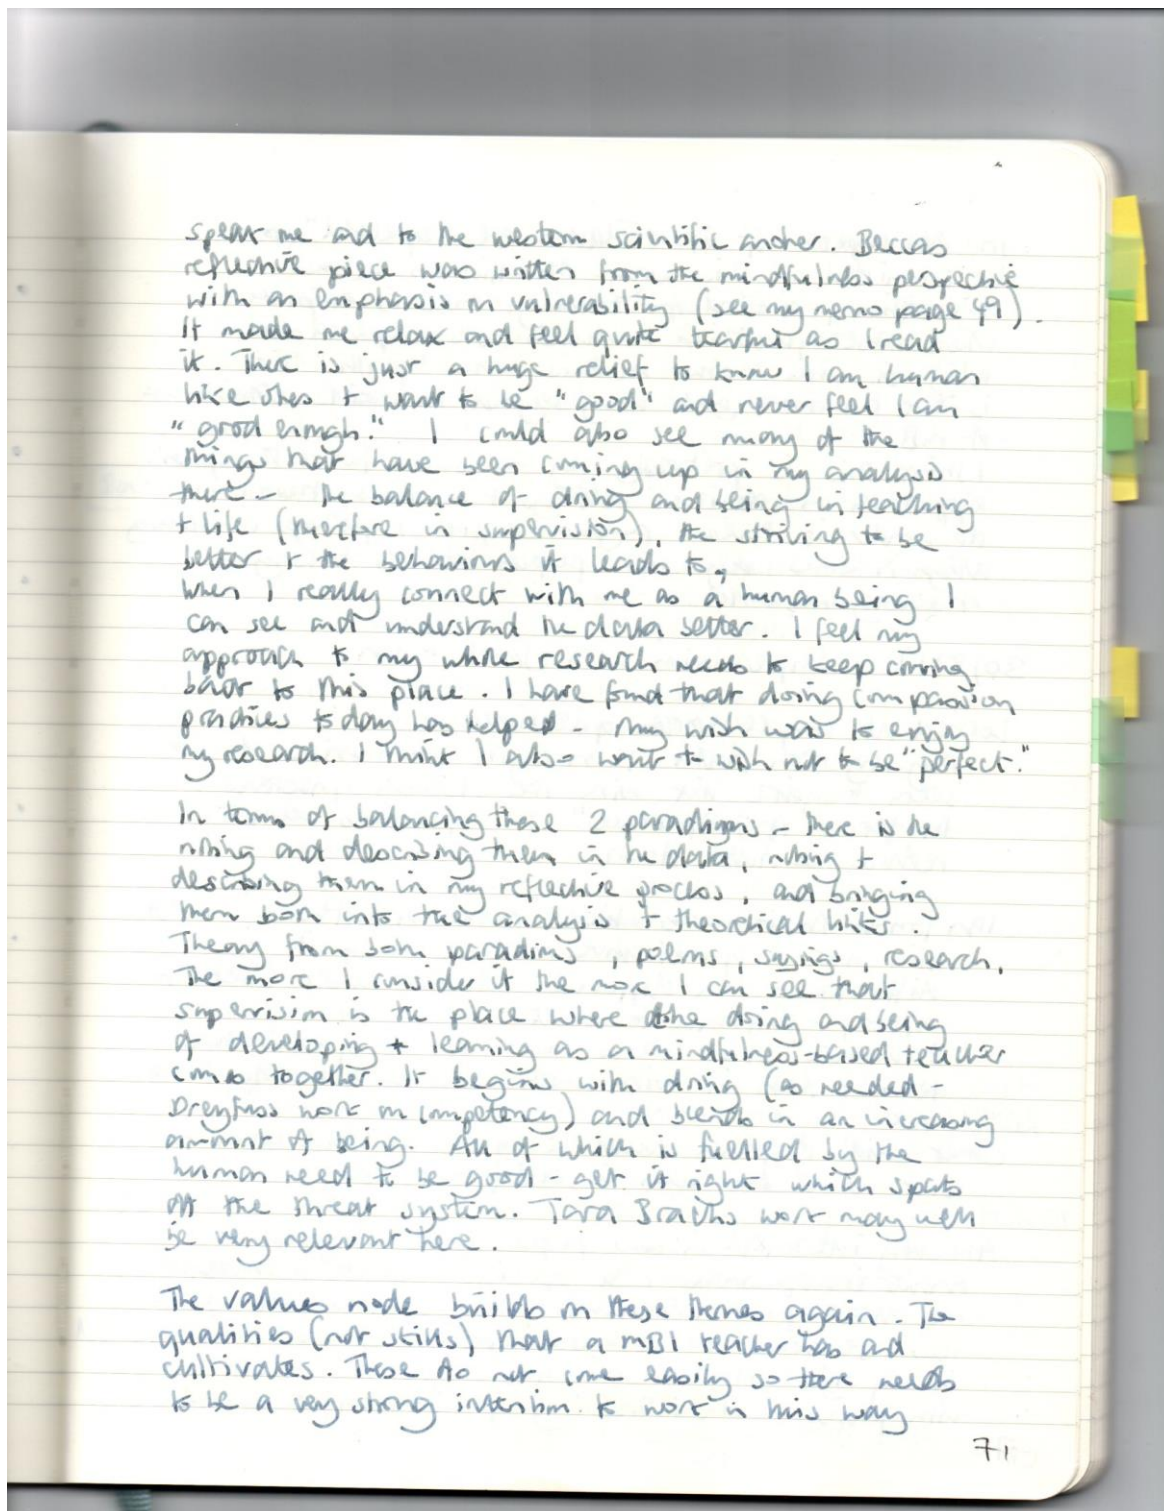 speak me and to the western scientific anchor. Beccas
reflective piece was written from the mindfulness perspective
with an emphasis on vulnerability (see my memo page 49).
It made me relax and feel quite tearful as I read
it. There is just a huge relief to know I am human
like others + want to be "good" and never feel I am
"good enough." I could also see many of the
things that have been coming up in my analysis
there - the balance of doing and being in teaching
+ life (therefore in supervision), the striving to be
better + the behaviours it leads to,
When I really connect with me as a human being I
can see and understand the data better. I feel my
approach to my whole research needs to keep coming
back to this place. I have found that doing compassion
practices today has helped - my wish was to enjoy
my research. I think I also want to wish not to be "perfect."
In terms of balancing these 2 paradigms - there is the
noting and describing them in the data, noting +
describing them in my reflective process, and bringing
them both into the analysis + theoretical links.
Theory from both paradims, poems, sayings, research.
The more I consider it the more I can see that
supervision is the place where the doing and being
of developing + learning as a mindfulness-based teacher
comes together. It begins with doing (as needed -
Dreyfuss work on competency) and blends in an increasing
amount of being. All of which is fuelled by the
human need to be good - get it right which sparks
off the threat system. Tara Brachs work may well
be very relevant here.
The values node builds on these themes again. The
qualities (not skills) that a MBI teacher has and
cultivates. These do not come easily so there needs
to be a very strong intention to work in this way
71